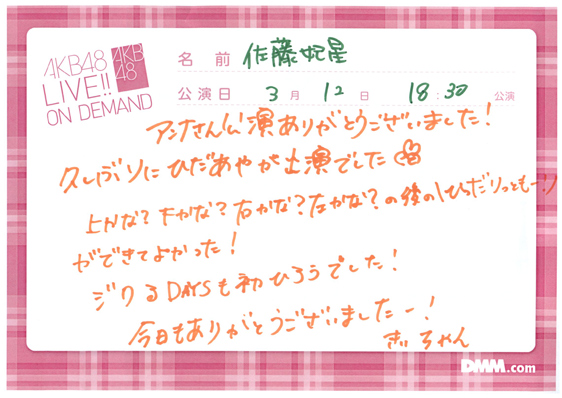 AKB48
LIVE!!
ON DEMAND
AKB
48
名 前 佐藤妃星
公演日 3月 12日 18:30 公演
アンナさん公演ありがとうございました!
久しぶりにひだあやが出演でした
上かな?下かな?右かな?左かな?の後の\ひらだりっともー!/
ができてよかった!
ジワるDAYSも初ひろうでした!
今日もありがとうございましたー!
きぃちゃん
DMM.com